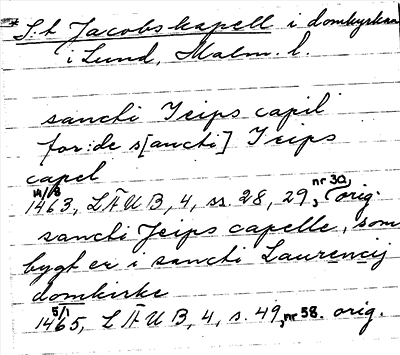 S:t Jacobs kapell i domkyrkan
i Lund, Malm. l.
sancti Jeips capil
for:de s[ancti] Jeips
capel
14/8 1463, LÄUB, 4, ss. 28, 29, nr 30, orig.
sancti Jeips capelle, som
bygt er i sancti Laurencij
domkirke
5/1 1465, LÄUB, 4, s. 49, nr 58. orig.